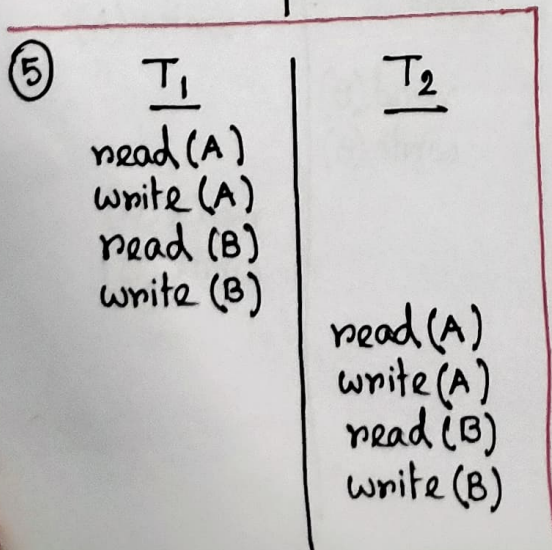 5 T1 T2
read (A)
write (A)
read (B)
write (B)
read (A)
write (A)
read (B)
write (B)